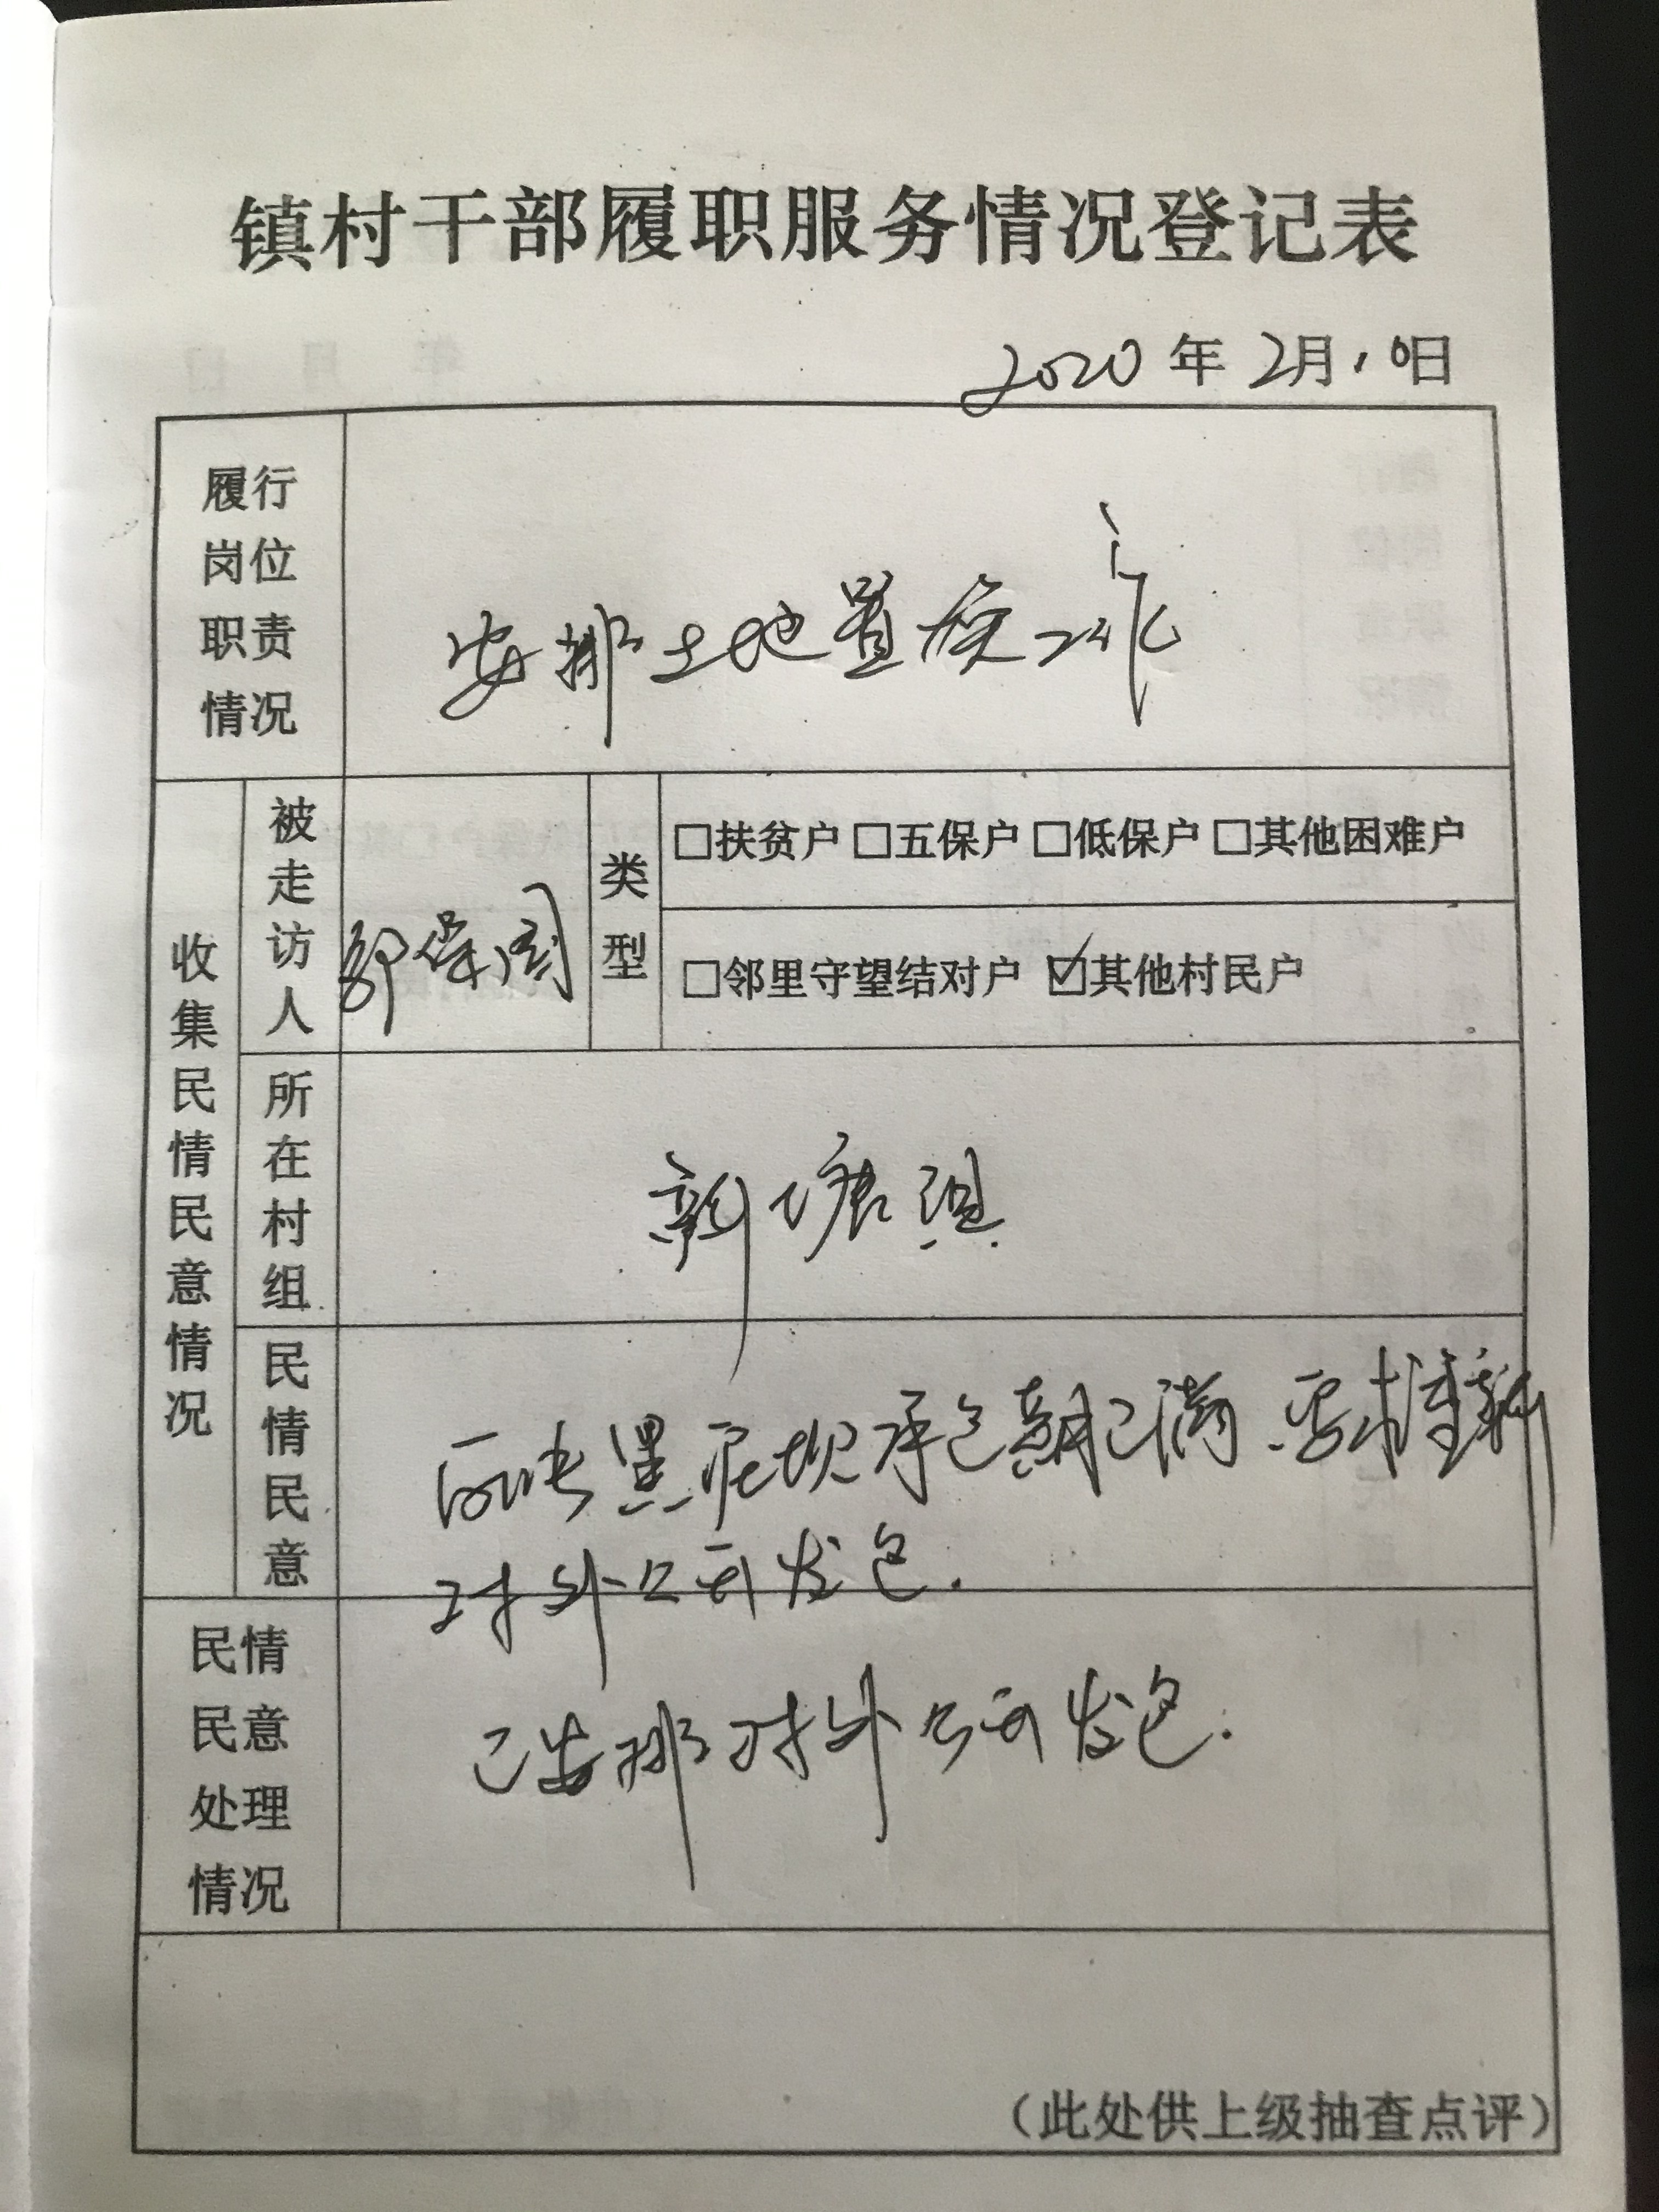 镇村干部履职服务情况登记表
2020年2月10日
履行岗位职责情况
安排土地置换工作
收集民情民意情况
被走访人
保国
类型
□扶贫户 □五保户 □低保户 □其他困难户
□邻里守望结对户 ☑其他村民户
所在村组
新塘组
民情民意
黑泥坝承包期已满,要求重新
对外公开发包.
民情民意处理情况
已安排对外公开发包.
（此处供上级抽查点评）